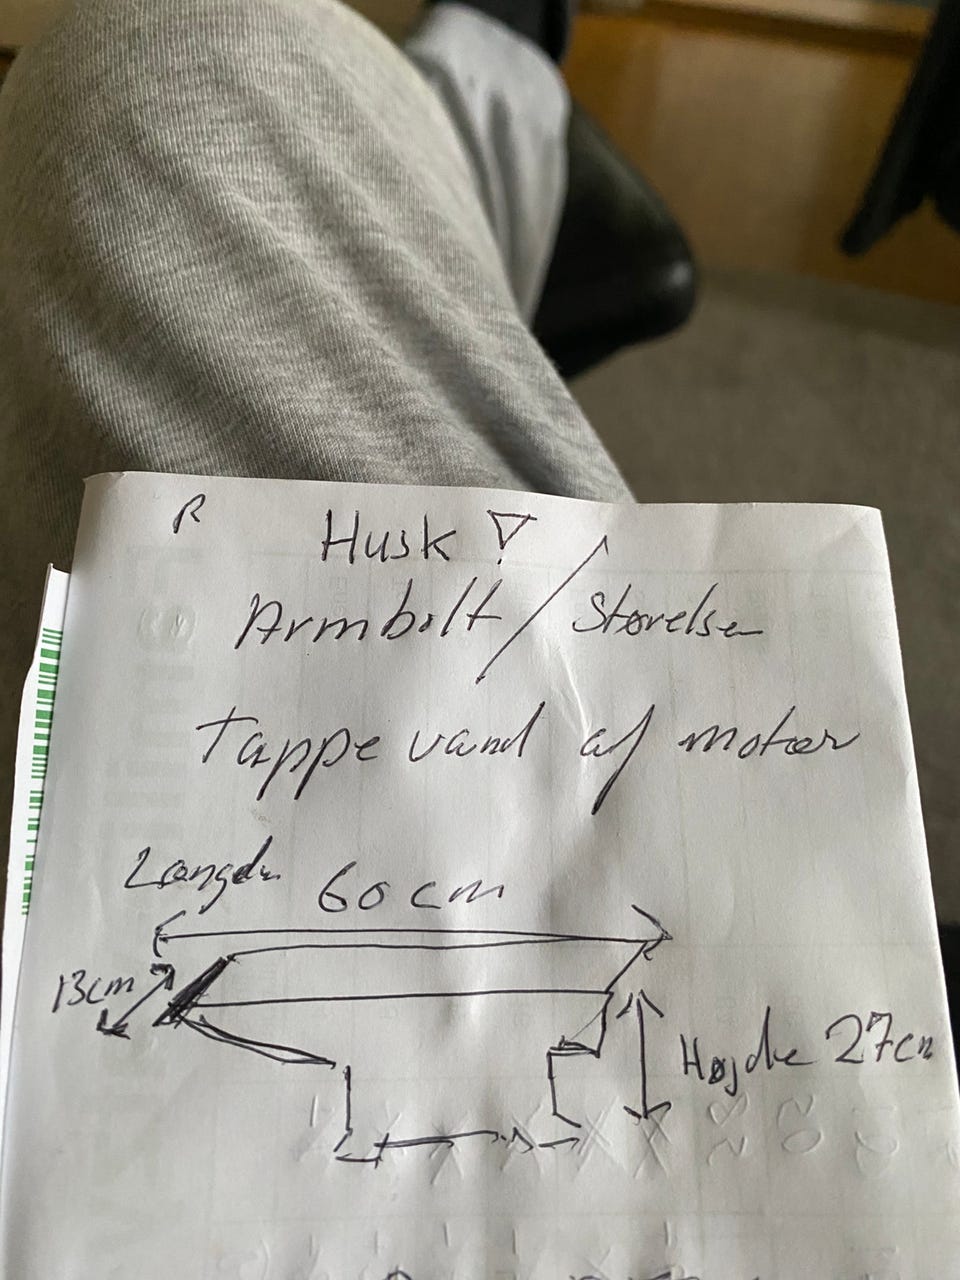 R
Husk
Armbolt / Størelse
Tappe vand af motor
Længde 60 cm
13cm
Højde 27cm